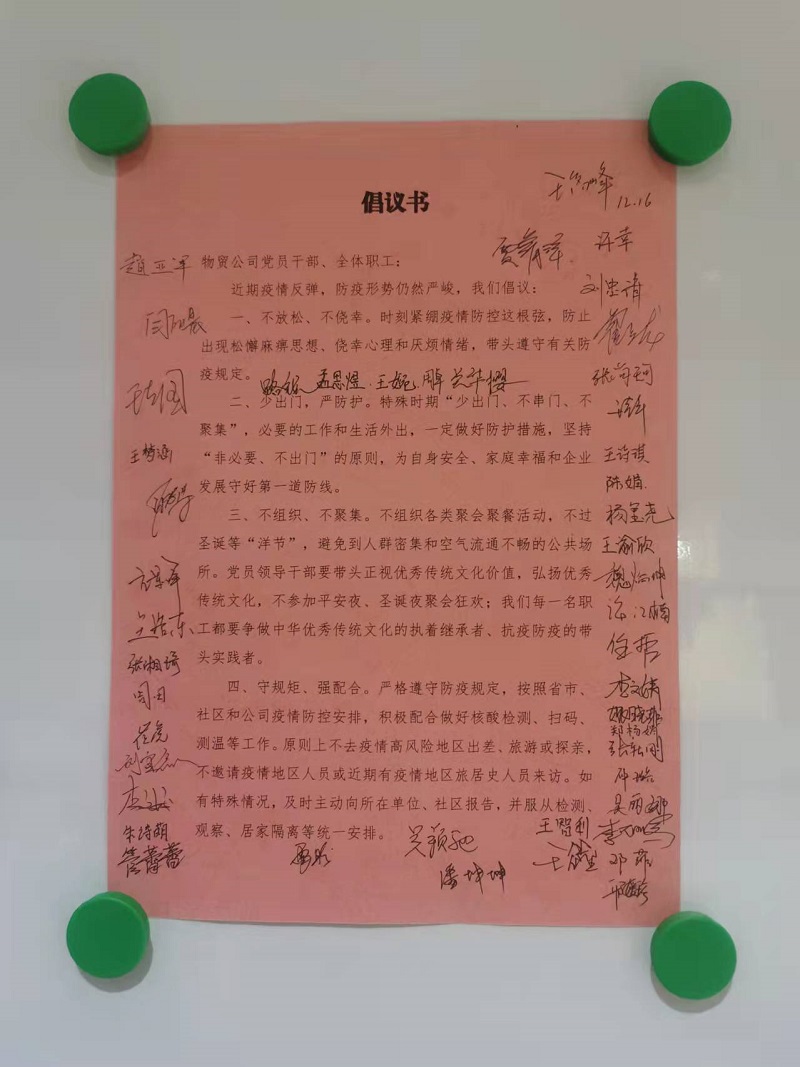 倡议书
12.16
物贸公司党员干部、全体职工：
近期疫情反弹，防疫形势仍然严峻，我们倡议：
一、不放松、不侥幸。时刻紧绷疫情防控这根弦，防止
出现松懈麻痹思想、侥幸心理和厌烦情绪，带头遵守有关防
疫规定。
二、少出门，严防护。特殊时期“少出门、不串门、不
聚集”，必要的工作和生活外出，一定做好防护措施，坚持
“非必要、不出门”的原则，为自身安全、家庭幸福和企业
发展守好第一道防线。
三、不组织、不聚集。不组织各类聚会聚餐活动，不过
圣诞等“洋节”，避免到人群密集和空气流通不畅的公共场
所。党员领导干部要带头正视优秀传统文化价值，弘扬优秀
传统文化，不参加平安夜、圣诞夜聚会狂欢；我们每一名职
工都要争做中华优秀传统文化的执着继承者、抗疫防疫的带
头实践者。
四、守规矩、强配合。严格遵守防疫规定，按照省市、
社区和公司疫情防控安排，积极配合做好核酸检测、扫码、
测温等工作。原则上不去疫情高风险地区出差、旅游或探亲，
不邀请疫情地区人员或近期有疫情地区旅居史人员来访。如
有特殊情况，及时主动向所在单位、社区报告，并服从检测、
观察、居家隔离等统一安排。
赵亚军
王梦涵
张湘琦
闫日
崔虎
朱诗萌
管蕾蕾
潘坤坤
王智利
许幸
刘忠倩
王诗琪
陈娟
王渝欣
任哲
李文娟
郑杨婷
吴丽娜
邓菲